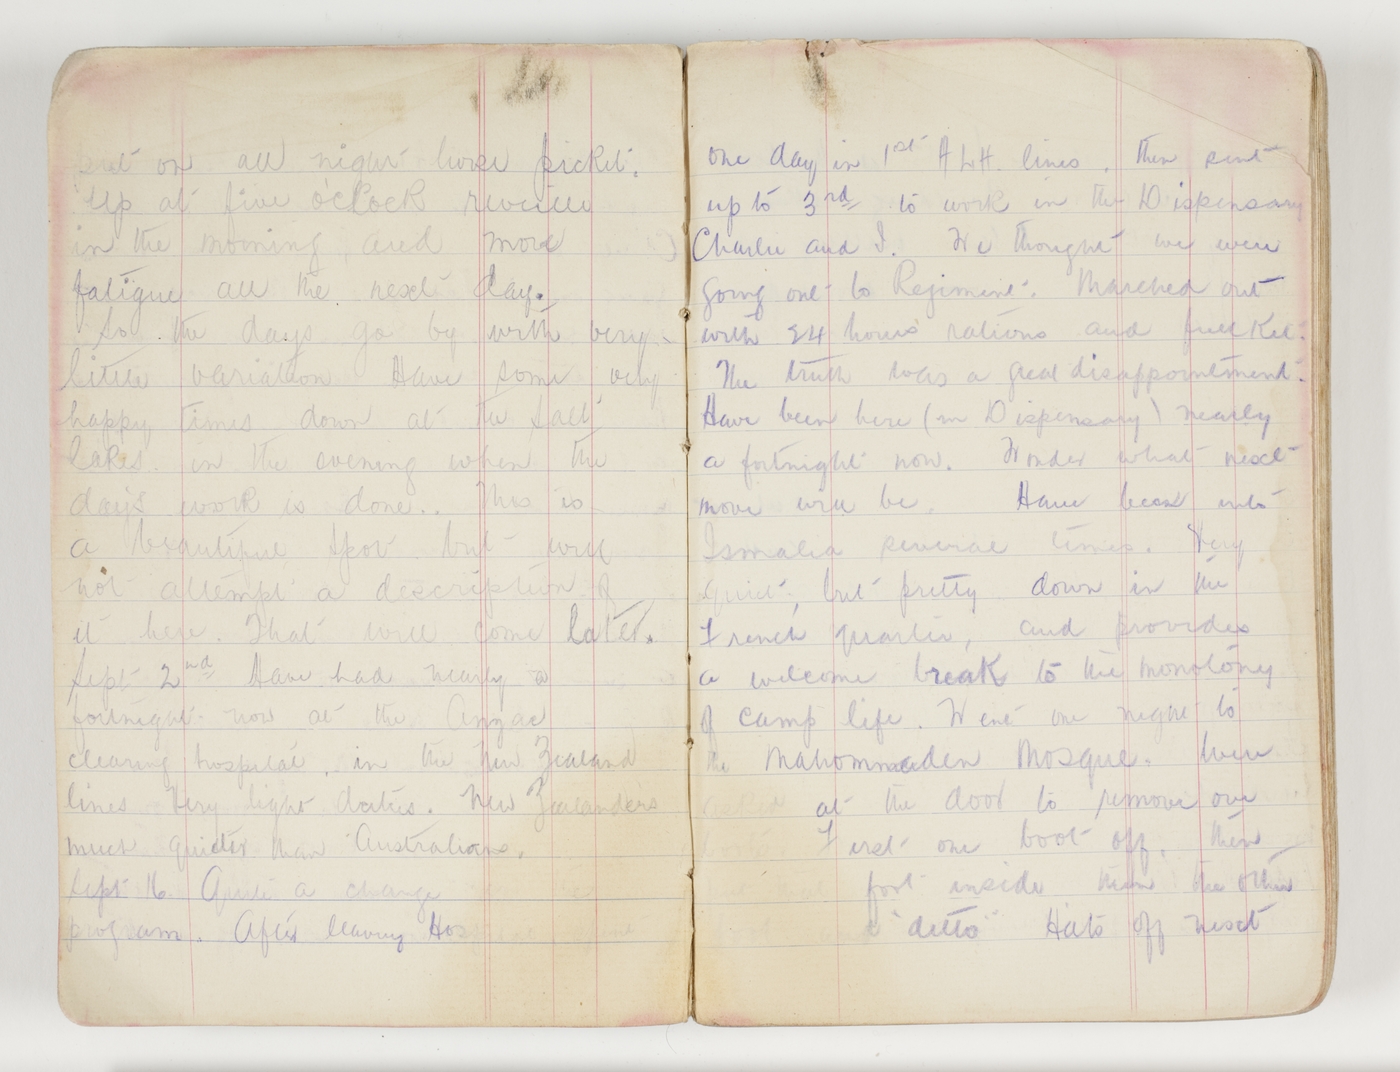 put on all night horse picket.
Up at five o'clock reveille
in the morning and more
fatigue all the next day.
So the days go by with very
little variation Have some very
happy times down at the salt
lakes in the evening when the
day's work is done.. This is
a beautiful spot but will
not attempt a description of
it here. That will come later.
Sept 2nd Have had nearly a
fortnight now at the Anzac
clearing hospital, in the New Zealand
lines Very light duties. New Zealanders
much quieter than Australians.
Sept 16. Quite a change
program. After leaving Hos
one day in 1st ALH. lines, then sent
up to 3rd to work in the Dispensary
Charlie and I. We thought we were
going out to Regiment. Marched out
with 24 hours rations and full kit.
The truth was a great disappointment.
Have been here (in Dispensary) nearly
a fortnight now. Wonder what next
move will be. Have been into
Ismalia several times. Very
quiet, but pretty down in the
French quarter, and provides
a welcome break to the monotony
of camp life. Went one night to
the Mahommaden Mosque. Were
asked at the door to remove our
boots. First one boot off, then
foot inside then the other
"ditto" Hats off next